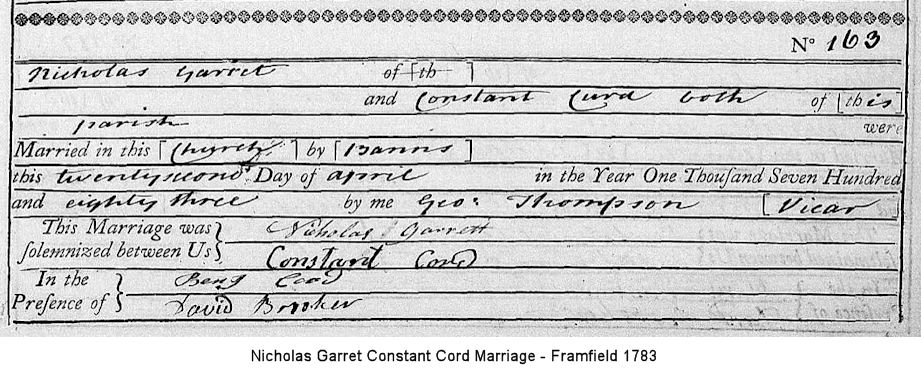 Nº 163
Nicholas Garret of [th ]
and Constant Curd both of [this]
parish were
Married in this [Church] by [Banns]
this twenty second Day of april in the Year One Thouſand Seven Hundred
and eighty three by me Geo: Thompson [Vicar]
This Marriage was Nicholas Garrett
ſolemnized between Us Constant Cord
In the Benj Cord
Preſence of David Brooker
Nicholas Garret Constant Cord Marriage - Framfield 1783